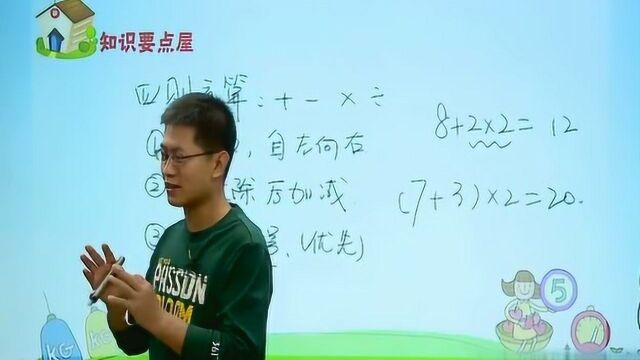 知识要点屋
四则运算:+ - × ÷
① 自左向右
② 除后加减
③ (优先)
8+2×2=12
(7+3)×2=20.
PASSION
KG
KG
5